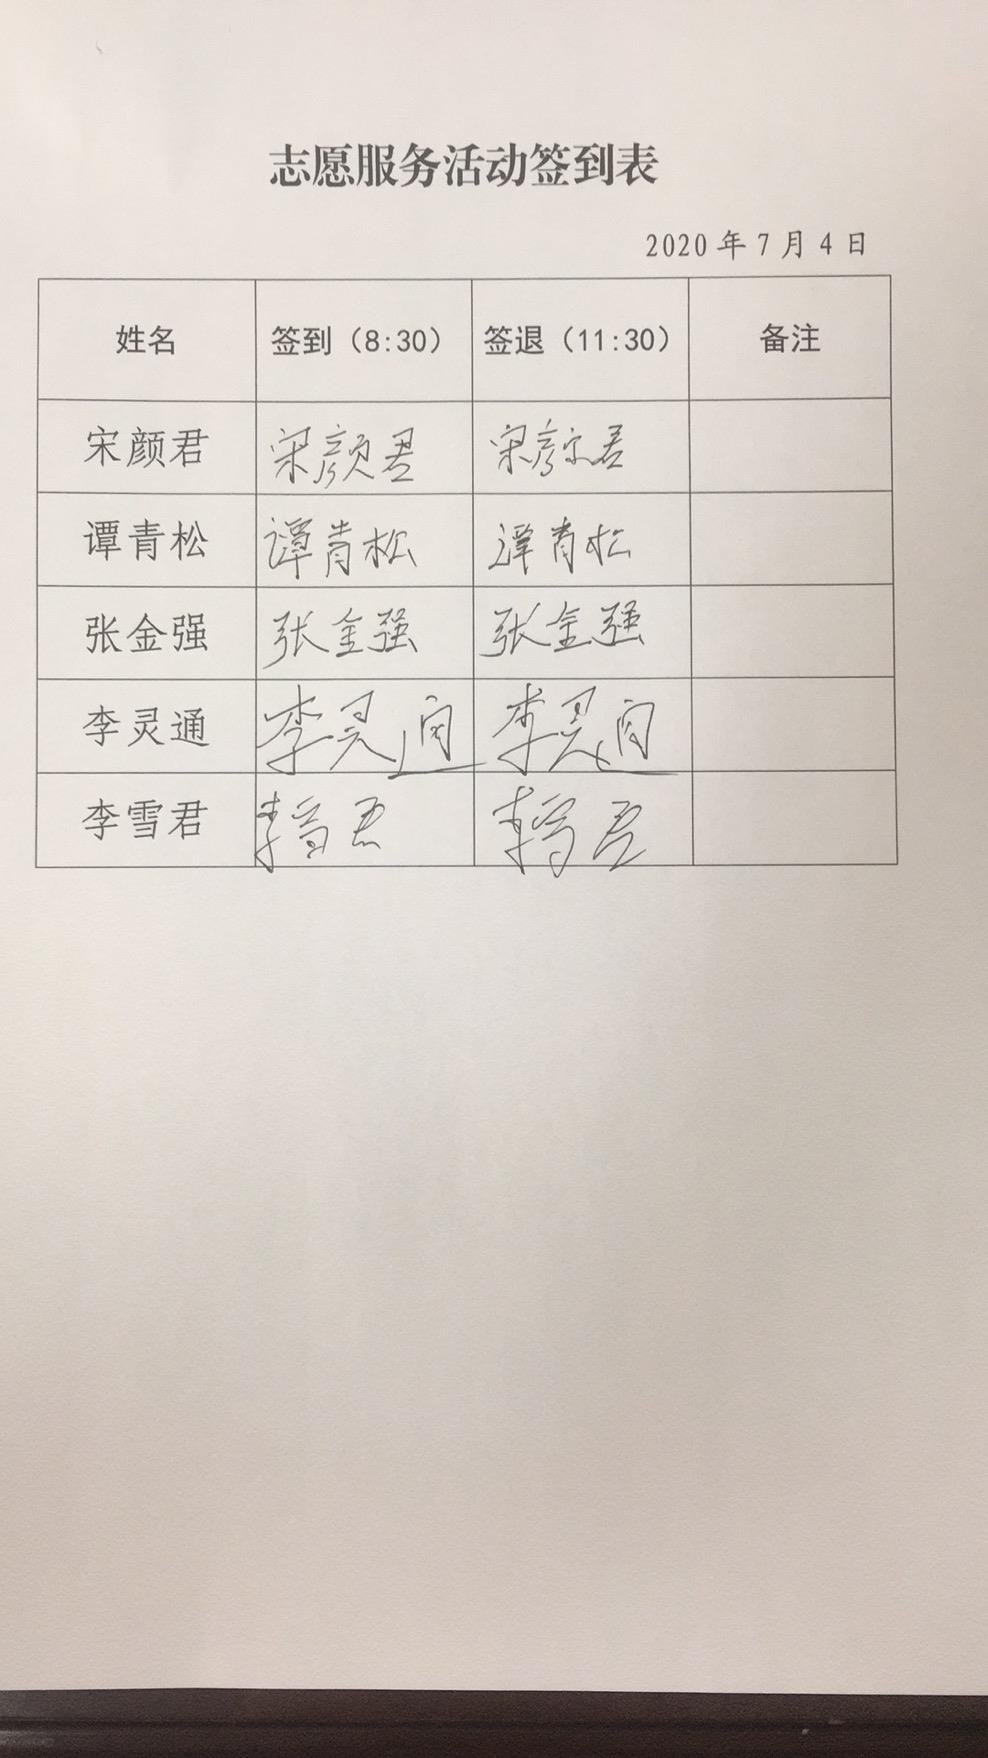 志愿服务活动签到表
2020年7月4日
姓名 签到（8:30） 签退（11:30） 备注
宋颜君 宋颜君 宋颜君
谭青松 谭青松 谭青松
张金强 张金强 张金强
李灵通 李灵通 李灵通
李雪君 李雪君 李雪君